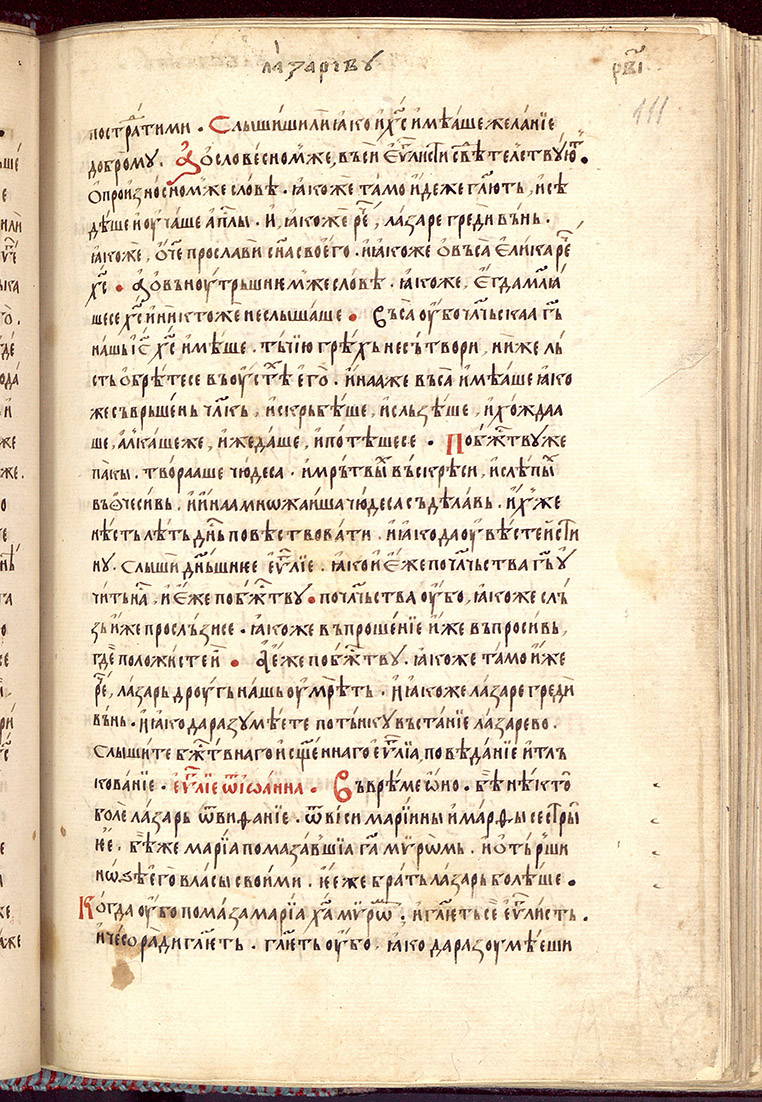 лазаревꙋ
рв҃і
111
постра́тими . Слы́шиши ли ꙗ҆́ко и҆ х҃с и҆мѣ́аше жела́нїе
до́бромꙋ . А҆ ѡ҆ слове́сномже , въсѝ є҆ѵⷢ҇листи свѣ́телствꙋ́юⷮ .
Ѻ҆ произно́сномже сло́вѣ . ꙗ҆́коже та́мо и҆де́же гл҃ютъ , и҆ сѣ
дѣ́ше и҆ ѹ҆ча́ше а҆пⷭ҇лы . И҆ , ꙗ҆́коже рⷱ҇е , ла́заре гредѝ вънь .
ꙗ҆́коже , ѻ҆́ч҃е просла́ви сн҃а своего̀ . и҆ ꙗ҆́коже ѻ҆въса є҆ли́ка рⷱ҇е
х҃с . А҆ ѻ҆ вънѹ́трьшнимже сло́вѣ . ꙗ҆́коже , є҆гда̀ мл҃ꙗ
шесе х҃с и҆ никто́же неслы́шаше . Въса ѹ҆̀бо чл҃чьскаа гь҃
нашь і҆с҃ х҃с и҆мѣ́ше . то́чїю грѣ́хь несътворѝ , ни́же лъ
сть ѻ҆брѣ́тесе въ ѹ҆стѣ́ е҆гѡ̀ . и҆на́аже въса и҆мѣ́аше ꙗ҆́ко
же съврьше́нь чл҃кь , и҆ скръбѣ́ше , и҆ слъзѣ́ше , и҆ хо́ждаа
ше , а҆лка́шеже , и҆ же́даше , и҆ потѣ́шесе . По бж҃твꙋже
па́кы . твора́аше чю́деса . и҆ мрътвы́ⷯ въскрѣ́си , и҆ слѣпы́ⷯ
въѻ҆чеси́вь . и҆ и҆на́а мнѡжа́иша чю́деса съдѣ́лавь . и҆́хже
нѣ́сть лѣ́ть дн҃ь повѣ́ствовати . и҆ ꙗ҆́ко да ѹ҆вѣ́сте и҆́сти
нꙋ . слы́ши дн҃ьшнее є҆ѵⷢ҇лїе . ꙗ҆́ко и҆ є҆́же по чл҃чьства гь҃ ѹ
чи́ть на̀ , и҆ є҆́же по бж҃твꙋ . по чл҃чьства ѹ҆́бо , ꙗ҆́коже слъ
зы и҆́же прослъ́зисе . ꙗ҆́коже въпроше́нїе и҆́же въпроси́вь ,
гдѐ положи́сте и҆̀ . А҆ є҆́же по бж҃твꙋ . ꙗ҆́коже та́мо и҆́же
рⷱ҇е , ла́зарь дрѹ́гь нашь ѹ҆мрѣ́ть . и҆ ꙗ҆́коже ла́заре гредѝ
вънь . и҆ ꙗ҆́ко да разꙋмѣ́ете по то́нкꙋ въста́нїе ла́зарево .
Слы́шите бж҃твнаго и҆ сщ҃е́ннаго є҆ѵⷢ҇лїа , повѣ́данїе и҆ тлъ
кова́нїе . є҆ѵⷢ҇лїе ѿ і҆ѡа́нна . Въ врѣ́ме ѡ҆́но . бѣ̀ нѣ́кто
бо́ле ла́зарь ѿ виѳа́нїе . ѿ ве́си марїи́ны и҆ ма́рѳы сестры́
ѥ҆ѐ . бѣ́же марі́а помаза́вшїа га҃ мѵ́рѡмь . и҆ ѻ҆тьрши
нѡ́ѕѣ е҆гѡ̀ вла́сы свои́ми . ѥ҆е́же бра́ть ла́зарь бо́лѣше .
Когда̀ ѹ҆́бо помаза̀ марі́а х҃а мѵ́рѡⷨ ; и҆ гл҃еть сѐ є҆ѵⷢ҇листь .
и҆ чесо ра́ди гл҃еть . гл҃еть ѹ҆́бо . ꙗ҆́ко да разѹмѣ́еши